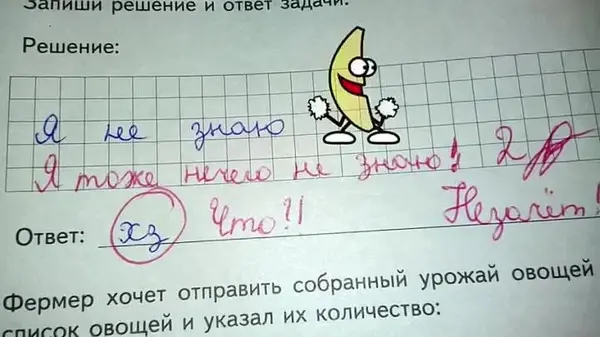 Запиши решение и ответ задачи.
Решение:
Я не знаю
Я тоже нечего не знаю! 2
Ответ: хз Что?! Незачёт!
Фермер хочет отправить собранный урожай овощей
список овощей и указал их количество: